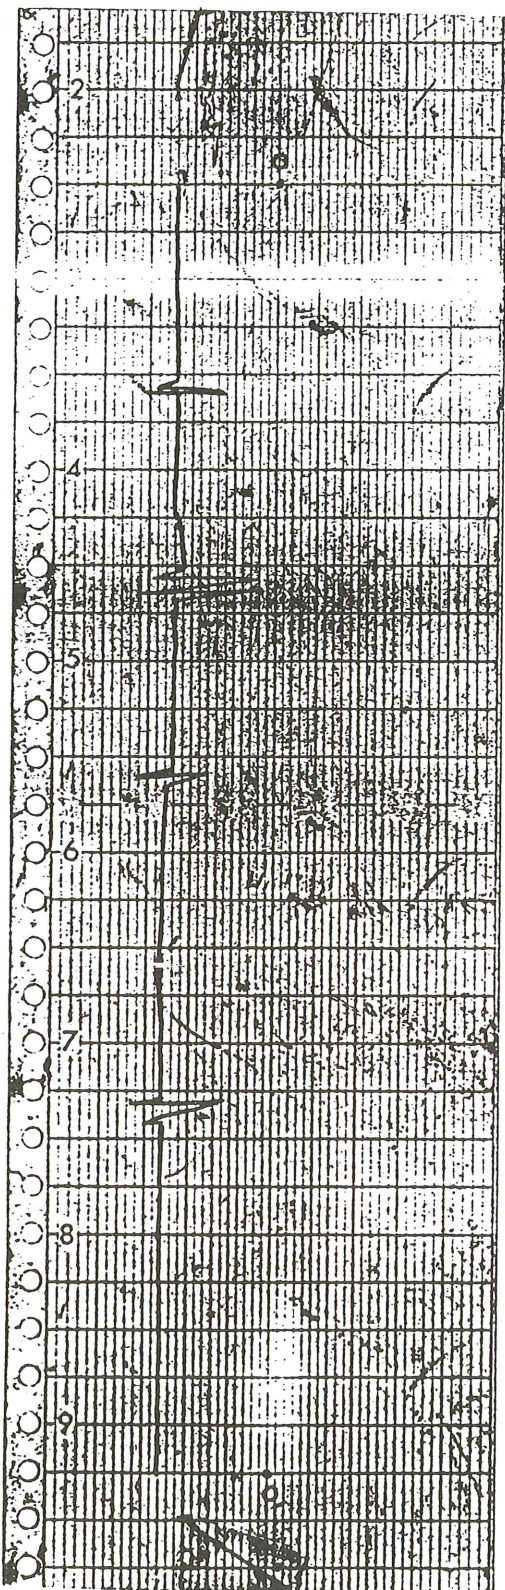 2
4
5
6
7
8
9